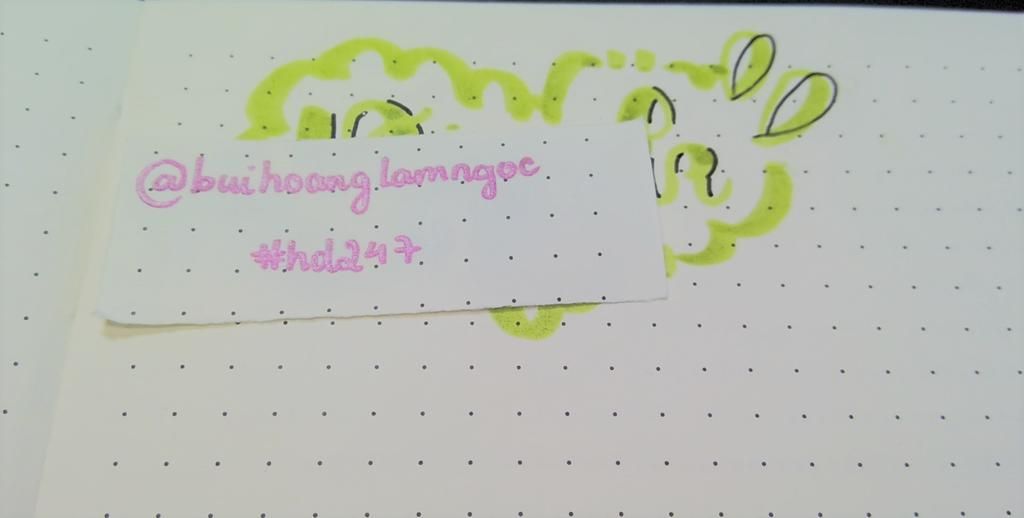 @buihoanglamngoc
#hda247